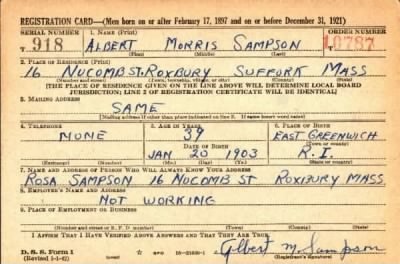 REGISTRATION CARD—(Men born on or after February 17, 1897 and on or before December 31, 1921)
SERIAL NUMBER 1. NAME (Print) ORDER NUMBER
T 918 ALBERT MORRIS SAMPSON T 10787
(First) (Middle) (Last)
2. PLACE OF RESIDENCE (Print)
16 NUCOMB ST. ROXBURY SUFFORK MASS
(Number and street) (Town, township, village, or city) (County) (State)
[THE PLACE OF RESIDENCE GIVEN ON THE LINE ABOVE WILL DETERMINE LOCAL BOARD
JURISDICTION; LINE 2 OF REGISTRATION CERTIFICATE WILL BE IDENTICAL]
3. MAILING ADDRESS
SAME
[Mailing address if other than place indicated on line 2. If same insert word same]
4. TELEPHONE 5. AGE IN YEARS 6. PLACE OF BIRTH
NONE 39 EAST GREENWICH
DATE OF BIRTH (Town or county)
JAN 20 1903 R.I.
(Exchange) (Number) (Mo.) (Day) (Yr.) (State or country)
7. NAME AND ADDRESS OF PERSON WHO WILL ALWAYS KNOW YOUR ADDRESS
ROSA SAMPSON 16 NUCOMB ST ROXBURY MASS
8. EMPLOYER'S NAME AND ADDRESS
NOT WORKING
9. PLACE OF EMPLOYMENT OR BUSINESS
(Number and street or R. F. D. number) (Town) (County) (State)
I AFFIRM THAT I HAVE VERIFIED ABOVE ANSWERS AND THAT THEY ARE TRUE.
D. S. S. Form 1
(Revised 1-1-42) (over)
Albert M. Sampson
(Registrant's signature)